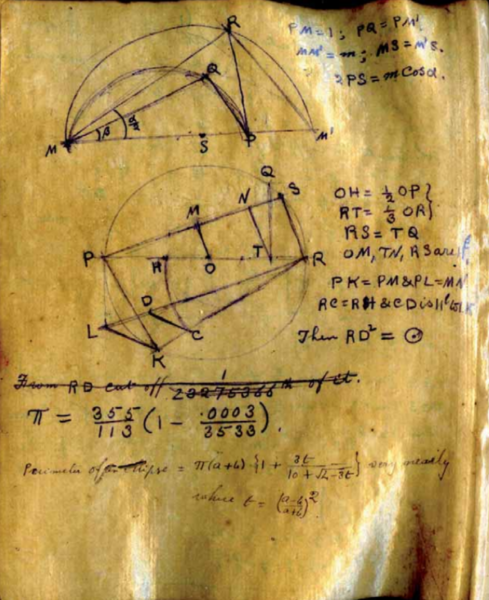 PM=1; PQ=PM'
MM'=m; MS=M'S.
2PS=mCosα.
R
Q
M
β
S
P
M'
Q
N
S
M
P
H
O
T
R
D
L
C
K
OH = 1/2 OP}
RT = 1/3 OR}
RS = TQ
OM, TN, RS are
PK=PM&PL=MN
RC=RH&CD is
Then RD² = ⊙
From RD cut off 1/23275366 th of it.
π = 355/113 (1 - .0003/3533).
Perimeter of an ellipse = π(a+b) {1 + 3t/(10+√(4-3t))} very nearly
where t = ((a-b)/(a+b))²